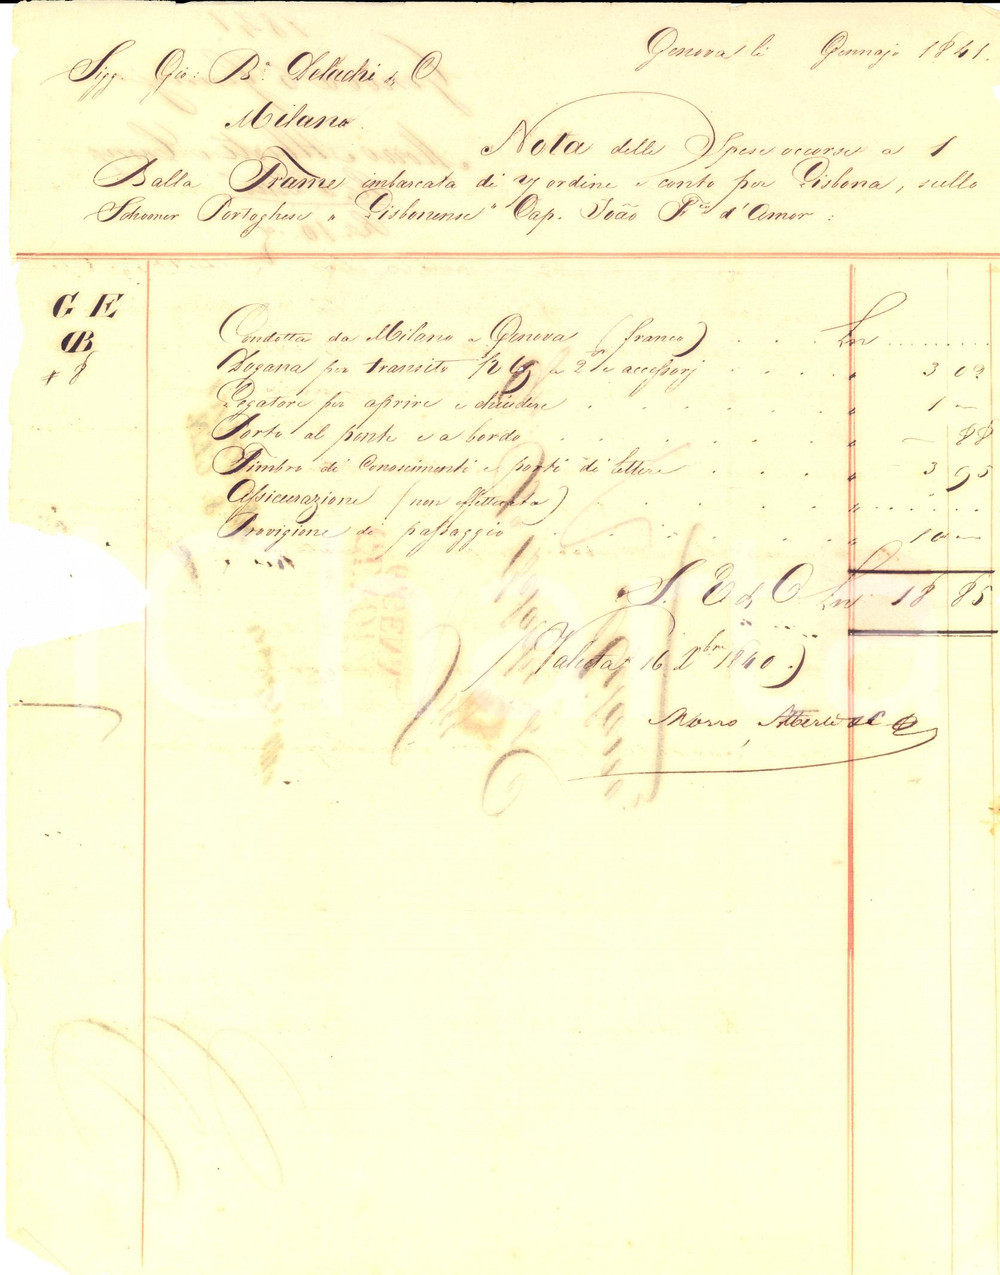 Genova li Gennajo 1841.
Sigg. Gio: Bª Delachi & C
Milano
Nota delle Spese occorse a 1
Balla Trame imbarcata di v/ ordine e conto per Lisbona, sullo
Schooner Portoghese "Lisbonense" Cap. João Fco d'Amor:
G E
CB
+ 8
Condotta da Milano a Genova (franco) . . . Ln ........
Dogana per transito K 65 a 2 e accessorj . . . . " 3 02
Legatore per aprire e chiudere . . . . . . " 1 —
Porto al ponte e a bordo . . . . . . " — 88
Timbro di Conoscimenti e porti di lettere . . . . " 3 95
Assicurazione (non effettuata) . . . . . " . . . . . .
Provigione di passaggio . . . . . . " 10 —
S. E & O Ln 18 85
(Valuta 16 Xbre 1840.)
Morro Alberti & C